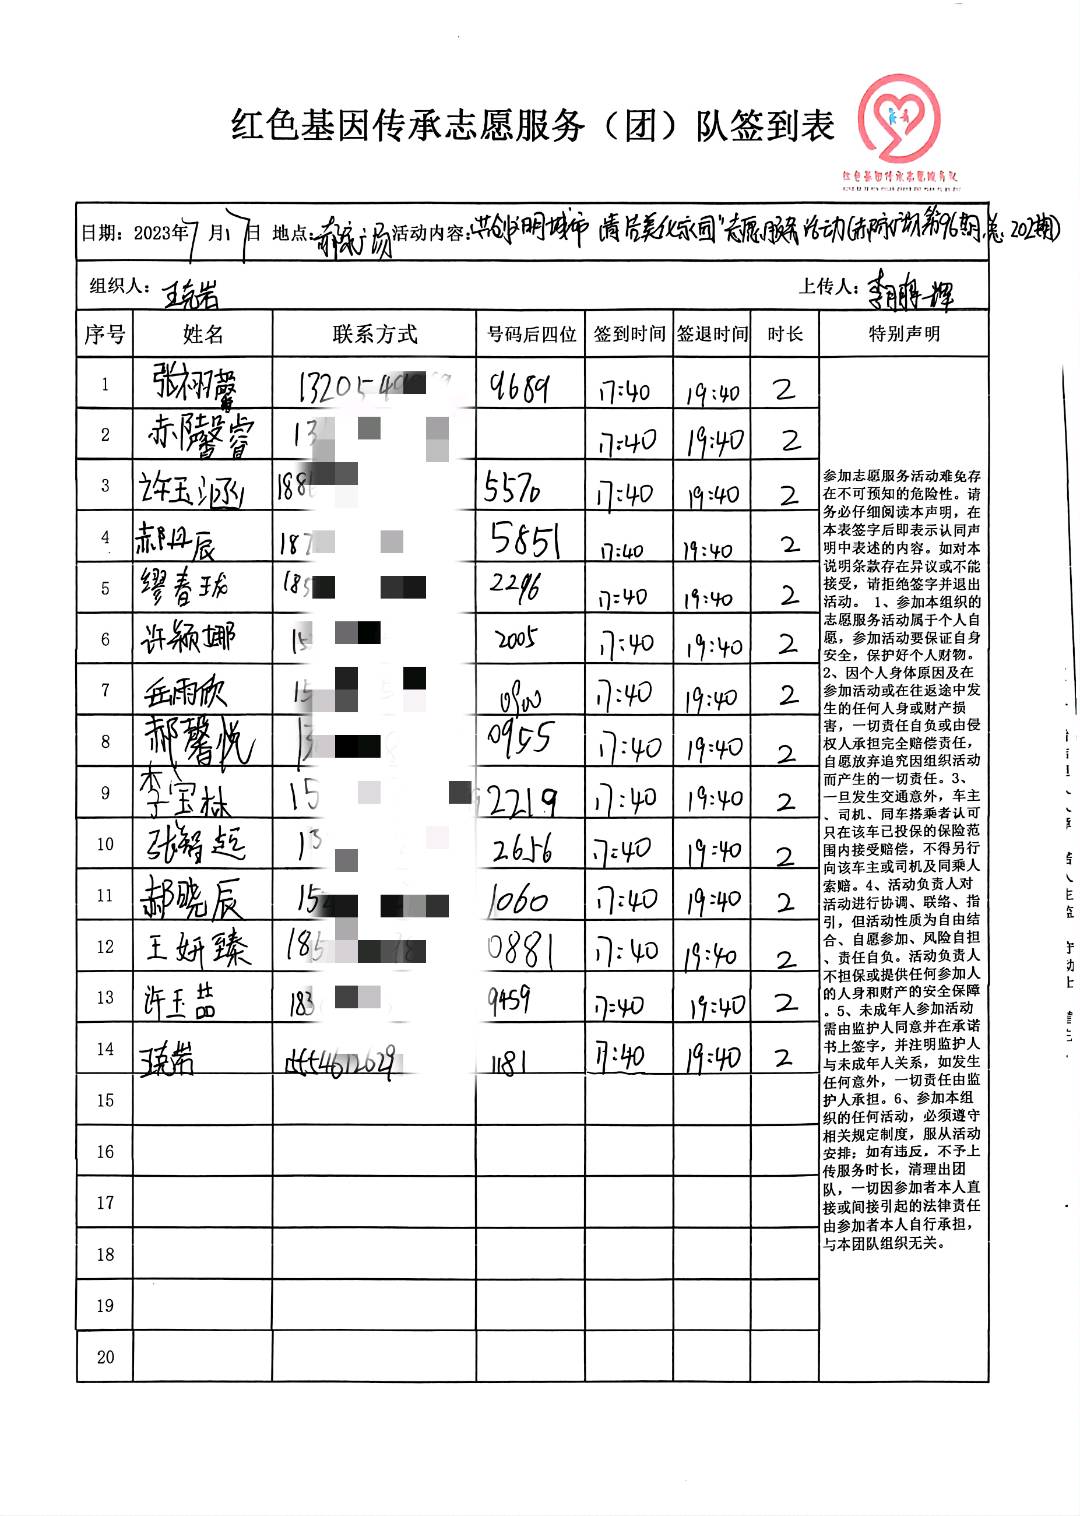 红色基因传承志愿服务（团）队签到表
红色基因传承志愿服务队
日期：2023年7月17日 地点：郝家广场 活动内容："共创文明城市 清洁美化家园"志愿服务活动(郝家广场第96期,总202期)
组织人：王克岩 上传人：
序号 姓名 联系方式 号码后四位 签到时间 签退时间 时长 特别声明
1 张栩馨 9689 17:40 19:40 2
2 馨睿 13 17:40 19:40 2
3 许玉涵 188 5570 17:40 19:40 2
4 郝丹辰 187 5851 17:40 19:40 2
5 缪春珑 185 2296 17:40 19:40 2
6 许颖娜 15 2005 17:40 19:40 2
7 岳雨欣 15 0900 17:40 19:40 2
8 郝馨悦 13 0955 17:40 19:40 2
9 李宝林 15 2219 17:40 19:40 2
10 张智超 13 2656 17:40 19:40 2
11 郝晓辰 15 1060 17:40 19:40 2
12 王妍臻 185 0881 17:40 19:40 2
13 许玉喆 183 9459 17:40 19:40 2
14 王克岩 1181 17:40 19:40 2
15
16
17
18
19
20
参加志愿服务活动难免存
在不可预知的危险性。请
务必仔细阅读本声明，在
本表签字后即表示认同声
明中表述的内容。如对本
说明条款存在异议或不能
接受，请拒绝签字并退出
活动。 1、参加本组织的
志愿服务活动属于个人自
愿，参加活动要保证自身
安全，保护好个人财物。
2、因个人身体原因及在
参加活动或在往返途中发
生的任何人身或财产损
害，一切责任自负或由侵
权人承担完全赔偿责任，
自愿放弃追究因组织活动
而产生的一切责任。3、
一旦发生交通意外，车主
、司机、同车搭乘者认可
只在该车已投保的保险范
围内接受赔偿，不得另行
向该车主或司机及同乘人
索赔。4、活动负责人对
活动进行协调、联络、指
引，但活动性质为自由结
合、自愿参加、风险自担
、责任自负。活动负责人
不担保或提供任何参加人
的人身和财产的安全保障
。5、未成年人参加活动
需由监护人同意并在承诺
书上签字，并注明监护人
与未成年人关系，如发生
任何意外，一切责任由监
护人承担。6、参加本组
织的任何活动，必须遵守
相关规定制度，服从活动
安排；如有违反，不予上
传服务时长，清理出团
队，一切因参加者本人直
接或间接引起的法律责任
由参加者本人自行承担，
与本团队组织无关。